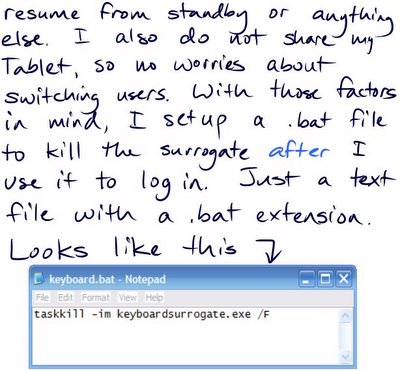 resume from standby or anything
else. I also do not share my
Tablet, so no worries about
switching users. With those factors
in mind, I set up a .bat file
to kill the surrogate after I
use it to log in. Just a text
file with a .bat extension.
Looks like this
keyboard.bat - Notepad
File Edit Format View Help
taskkill -im keyboardsurrogate.exe /F